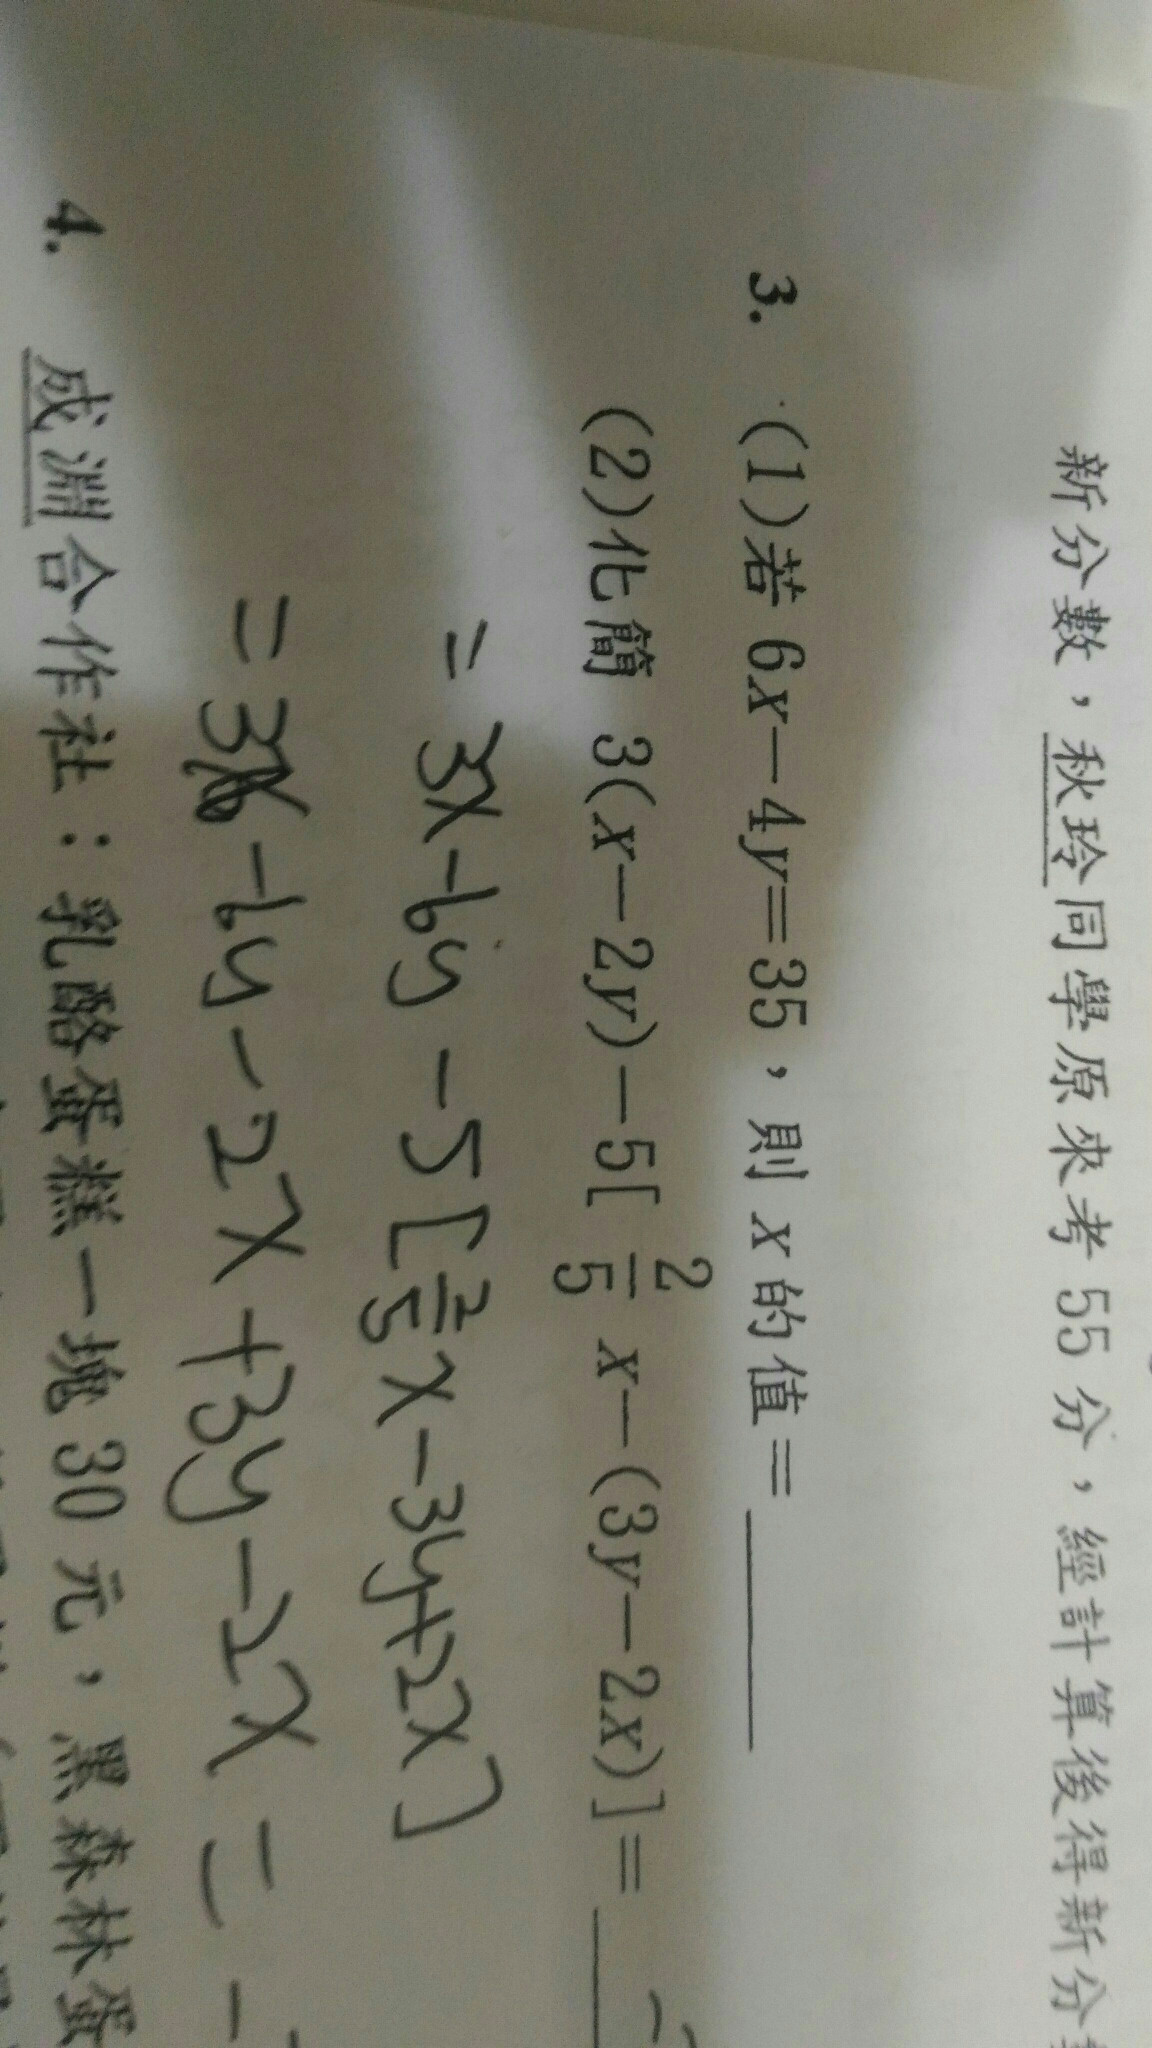 新分數，秋玲同學原來考 55 分，經計算後得新分
3. (1)若 6x－4y＝35，則 x 的值＝
(2)化簡 3(x－2y)－5[2/5 x－(3y－2x)]＝
= 3x-6y-5[2/5x-3y+2x]
= 3x-6y-2x+3y-2x = -
4. 成淵合作社：乳酪蛋糕一塊 30 元，黑森林蛋